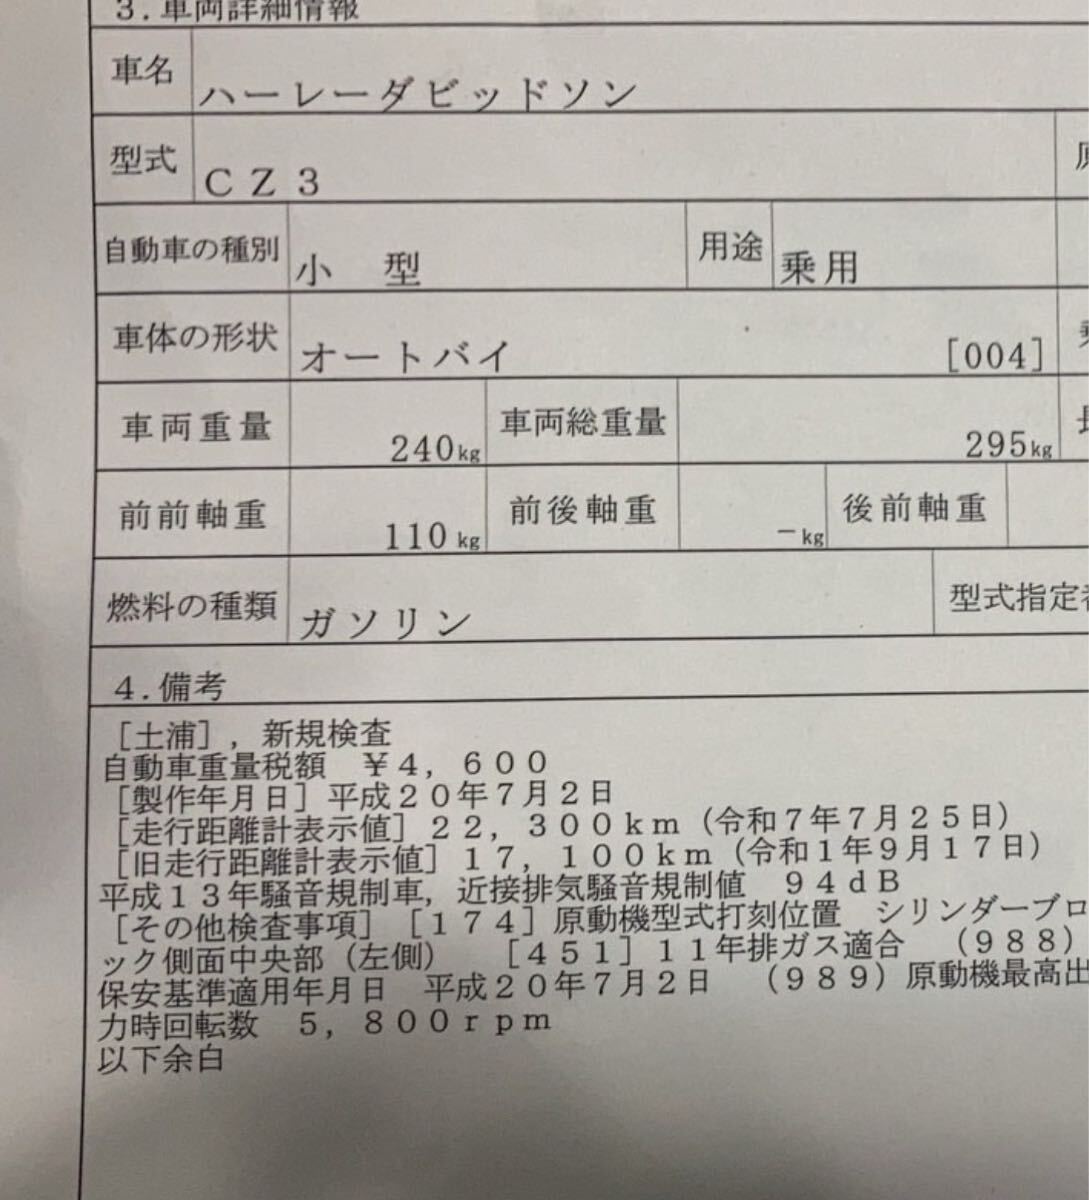 3.車両詳細情報
車名 ハーレーダビッドソン
型式 CZ3
自動車の種別 小 型 用途 乗用
車体の形状 オートバイ [004]
車両重量 240kg 車両総重量 295kg
前前軸重 110kg 前後軸重 -kg 後前軸重
燃料の種類 ガソリン 型式指定
4.備考
[土浦],新規検査
自動車重量税額 ¥4,600
[製作年月日]平成20年7月2日
[走行距離計表示値]22,300km(令和7年7月25日)
[旧走行距離計表示値]17,100km(令和1年9月17日)
平成13年騒音規制車,近接排気騒音規制値 94dB
[その他検査事項][174]原動機型式打刻位置 シリンダーブロ
ック側面中央部(左側) [451]11年排ガス適合 (988)
保安基準適用年月日 平成20年7月2日 (989)原動機最高出
力時回転数 5,800rpm
以下余白